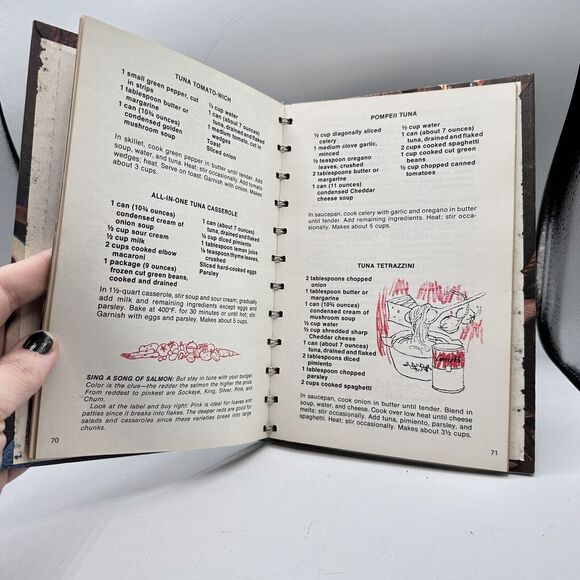 TUNA TOMATO-WICH
1 small green pepper, cut
in strips
1 tablespoon butter or
margarine
1 can (10¾ ounces)
condensed golden
mushroom soup
⅓ cup water
1 can (about 7 ounces)
tuna, drained and flaked
1 medium tomato, cut in
wedges
Toast
Sliced onion
In skillet, cook green pepper in butter until tender. Add
soup, water, and tuna. Heat; stir occasionally. Add tomato
wedges; heat. Serve on toast. Garnish with onion. Makes
about 3 cups.
ALL-IN-ONE TUNA CASSEROLE
1 can (10¾ ounces)
condensed cream of
onion soup
½ cup sour cream
½ cup milk
2 cups cooked elbow
macaroni
1 package (9 ounces)
frozen cut green beans,
cooked and drained
1 can (about 7 ounces)
tuna, drained and flaked
¼ cup diced pimiento
1 tablespoon lemon juice
⅛ teaspoon thyme leaves,
crushed
Sliced hard-cooked eggs
Parsley
In 1½-quart casserole, stir soup and sour cream; gradually
add milk and remaining ingredients except eggs and
parsley. Bake at 400°F. for 30 minutes or until hot; stir.
Garnish with eggs and parsley. Makes about 5 cups.
SING A SONG OF SALMON: But stay in tune with your budget.
Color is the clue—the redder the salmon the higher the price.
From reddest to pinkest are Sockeye, King, Silver, Pink, and
Chum.
Look at the label and buy right: Pink is ideal for loaves and
patties since it breaks into flakes. The deeper reds are good for
salads and casseroles since these varieties break into large
chunks.
70
POMPEII TUNA
½ cup diagonally sliced
celery
1 medium clove garlic,
minced
½ teaspoon oregano
leaves, crushed
2 tablespoons butter or
margarine
1 can (11 ounces)
condensed Cheddar
cheese soup
½ cup water
1 can (about 7 ounces)
tuna, drained and flaked
2 cups cooked spaghetti
1 cup cooked cut green
beans
½ cup chopped canned
tomatoes
In saucepan, cook celery with garlic and oregano in butter
until tender. Add remaining ingredients. Heat; stir occa-
sionally. Makes about 5 cups.
TUNA TETRAZZINI
2 tablespoons chopped
onion
1 tablespoon butter or
margarine
1 can (10¾ ounces)
condensed cream of
mushroom soup
½ cup water
½ cup shredded sharp
Cheddar cheese
1 can (about 7 ounces)
tuna, drained and flaked
2 tablespoons diced
pimiento
1 tablespoon chopped
parsley
2 cups cooked spaghetti
In saucepan, cook onion in butter until tender. Blend in
soup, water, and cheese. Cook over low heat until cheese
melts; stir occasionally. Add tuna, pimiento, parsley, and
spaghetti. Heat; stir occasionally. Makes about 3½ cups.
71